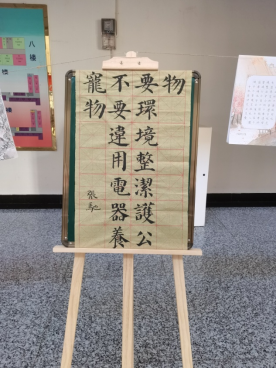 要環境整潔護公
物
不要違用電器養
寵物
張
八楼
楼